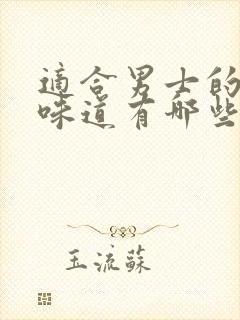 適合男士的
味道有哪些
玉流蘇